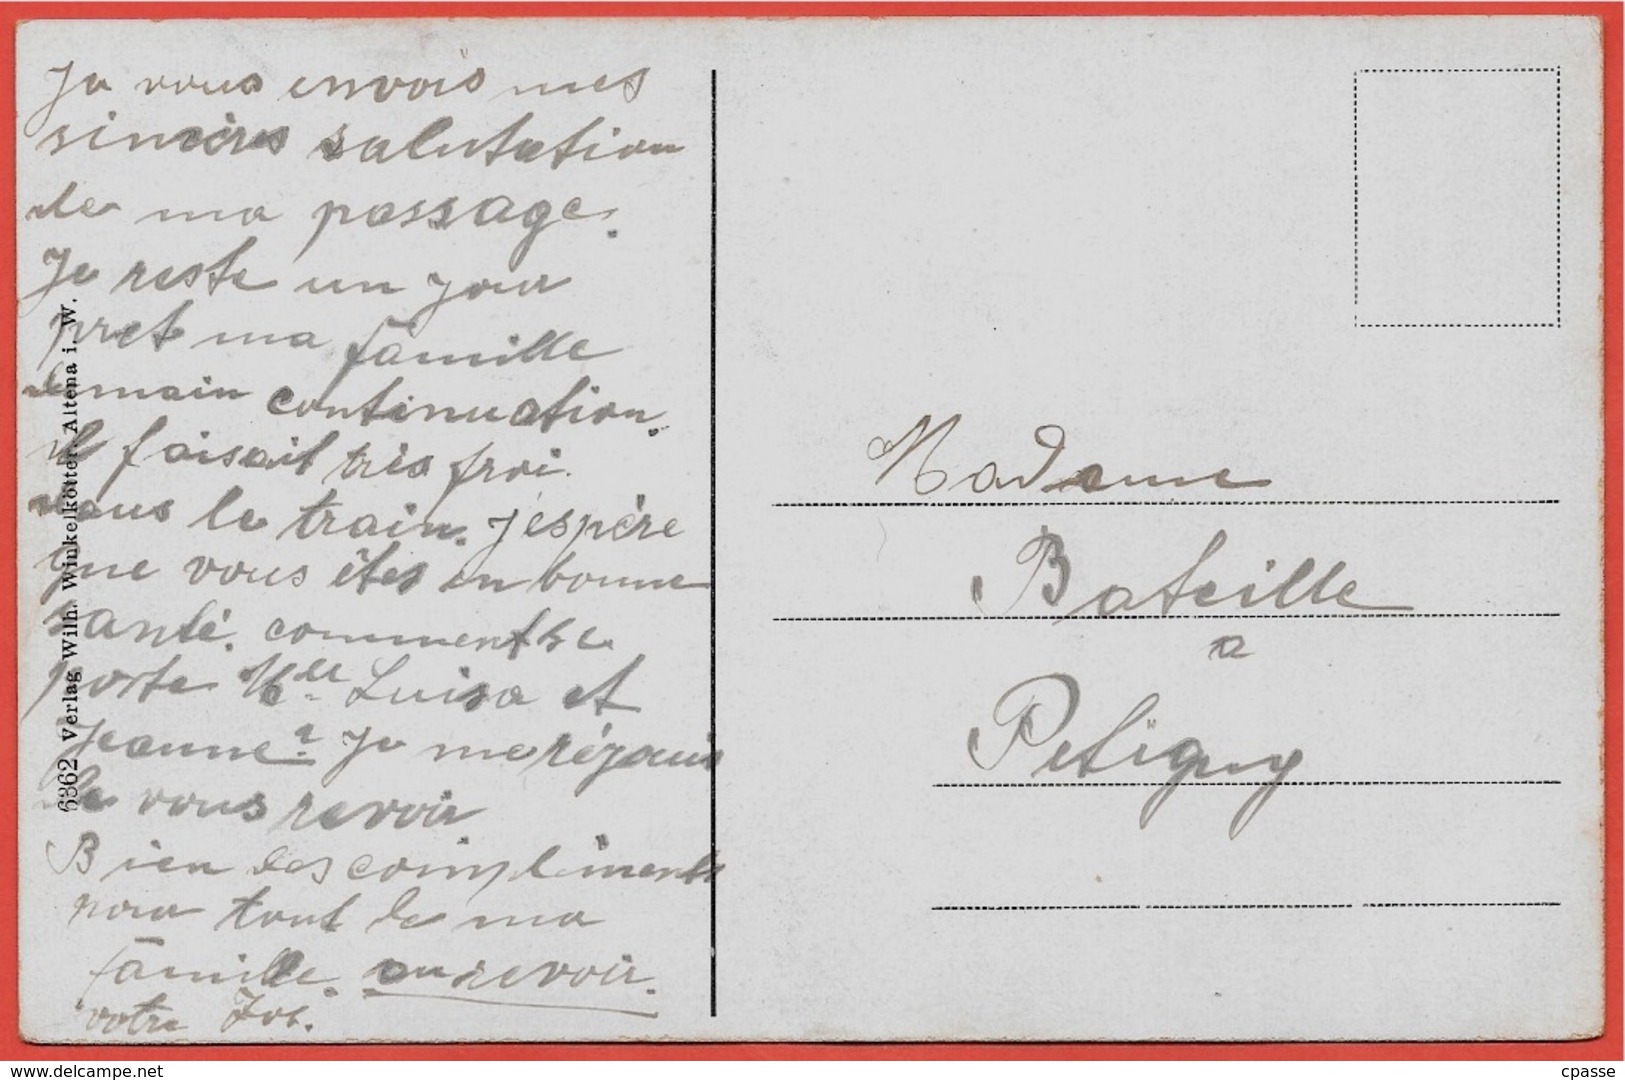 Je vous envois mes
sincères salutation
de ma passage.
Je reste un jour
pret ma famille
demain continuation.
il faisait très froi.
dans le train. j'espère
que vous êtes en bonne
santé. comment se
porte Mlle Luisa et
Jeanne? Je me réjouis
de vous revoir
Bien des compliments
pour tout de ma
famille. au revoir.
votre Jos.
6362 Verlag Wilh. Winkelkötter, Altena i. W.
Madame
Bateille
a
Petigny
www.delcampe.net
cpasse